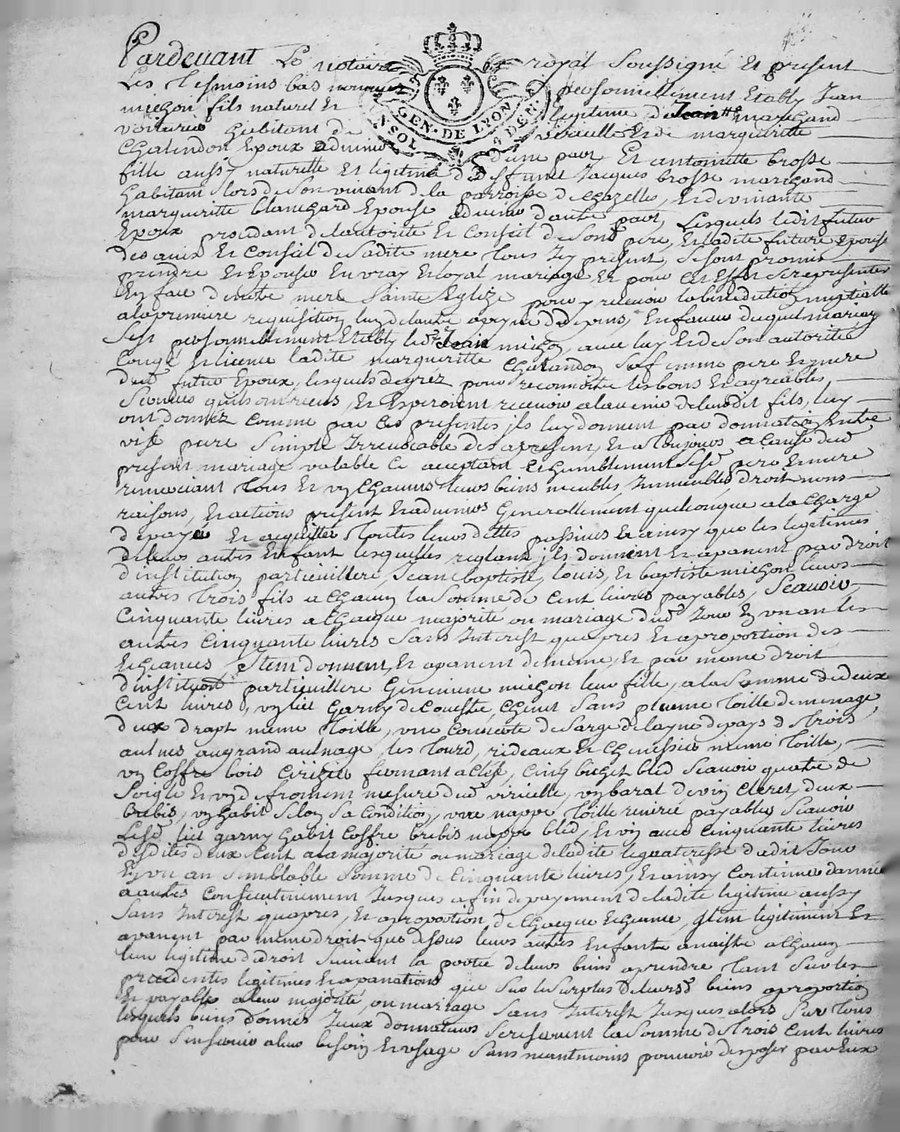 Pardevant Le notaire royal Soussigné Et present
Les Tesmoins bas nommez personnellement Etably Jean
miechon fils naturel Et legitime de Jean marchand
voiturier habitant de Et de margueritte
Chalendon Epoux advenir d'une part Et antoinette brosse
fille aussy naturelle Et legitime de deffunt Jacques brosse marchand
habitant lors de son vivant de la parroisse de Chazelles, Et de vivante
margueritte blanchard Epouse advenir d'autre part, Lesquels ledit futur
Epoux procedant de lautorité Et Conseil de sond. pere, Et ladite future Epouse
des avis Et Conseil de sadite mere Tous Icy present, se sont promis
prendre Et Epouser En vray Et loyal mariage Et pour Cet Effet se representer
En face de notre mere Sainte Eglize pour y recevoir la benediction nuptialle
ala premiere requisition luy de lautre a peyne de depens, En faveur duquel mariage
Sest personnellement Etably led. Jean miechon avec luy Et de son autorité
Congé Et licence ladite margueritte Chalandon Sa femme pere Et mere
dud. futur Epoux, lesquels de gréz pour reconnoitre les bons Et agreables
Services quils ont receus, Et Esperoient recevoir alavenir deleurdit fils, luy
ont donnéz Comme par Ces presentes ils luy donnent par donnation Entre
vifs pure Simple Irrevocable des apresent, Et a Toujours a Cause dud.
present mariage valable Ce acceptant Et humblement Sesd. pere Et mere
remerciant Tous Et un Chacuns leurs biens meubles, Immeubles, droit noms
raisons, Et actions present Et advenirs Generallement quelconque ala Charge
de payer Et acquitter Toutes leurs dettes passives Et ainsy que les legitimes
de leurs autres Enfant lesquelles reglant, ils donnent Et apanent par droit
d'institution particuilliere, Jean baptiste, louis, Et baptiste miechon leurs
autres Trois fils a Chacun la Somme de Cent livres payables, Scavoir
Cinquante livres a Chacque majorité ou mariage dud. Jour En un an les
autres Cinquante livres Sans Interest quapres Et aproportion des
Echeances, Item donnent, Et apanent de meme, Et par meme droit
d'institution particuilliere Genevieve miechon leur fille, ala Somme de deux
Cent livres, un lict Garny de Couette, Chevet Sans plume Toille de menage
deux drapt meme Toille, une Couverte de Sarge de layne de pays de Trois
aulnes au grand aulnage, les Tourd, rideaux Et Chenissiere meme Toille,
un Coffre bois Cerizier fermant a Clef, Cinq bichet bled Scavoir quatre de
Seigle Et un de froment mesure dud. virielle, un barat de vin Cleret, deux
brebis, un habit Selon Sa Condition, une nappe Toille payables, Scavoir
Lesd. lict garny habit Coffre brebis nappe bled, Et vin avec Cinquante livres
desdites deux Cent ala majorité ou mariage deladite legataresse dudit Jour
En un an Semblable Somme de Cinquante livres, Et ainsy Continuer dannée
a autres Consecutivement Jusques afin de payement de ladite legitime aussy
Sans Interest quapres, Et aproportion de Chacque Echeance, Item legitiment Et
apanent par meme droit que dessus leurs autres Enfants anaistre a Chacun
leur legitime de droit Suivant la portée de leurs biens aprendre Tant Sur les
precedentes legitimes Et apanations que Sur le Surplus de leursd. biens aproportion
Et payables a leur majorité, ou mariage Sans Interest Jusques alors Sur Tous
lesquels biens donnés Iceux donnateurs Se reservent la Somme de Trois Cent livres
pour S'en servir aleur besoin Et usage Sans neantmoins pouvoir disposer par Eux
GEN. DE LYON